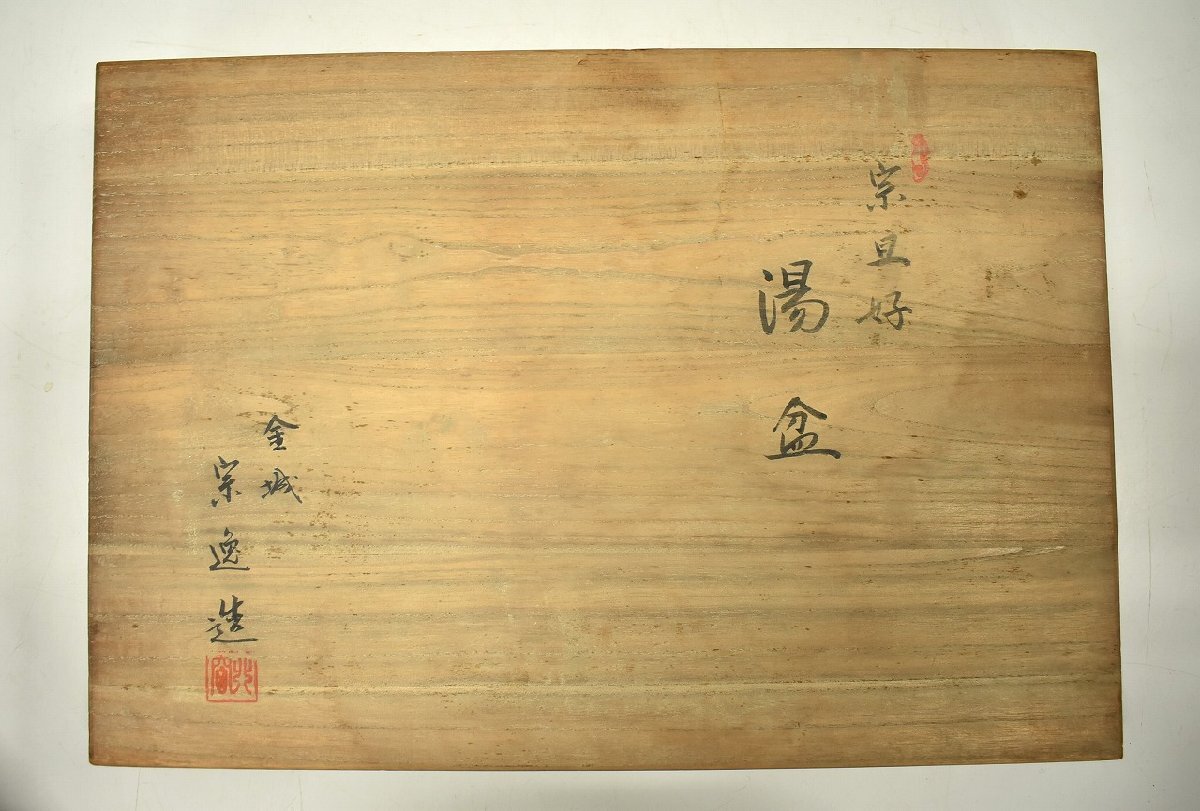 宗旦好
湯盆
金城
宗逸造